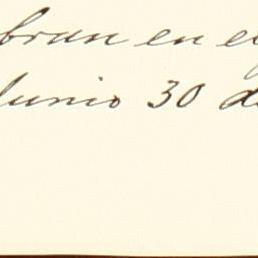 bran en e
Junio 30 d